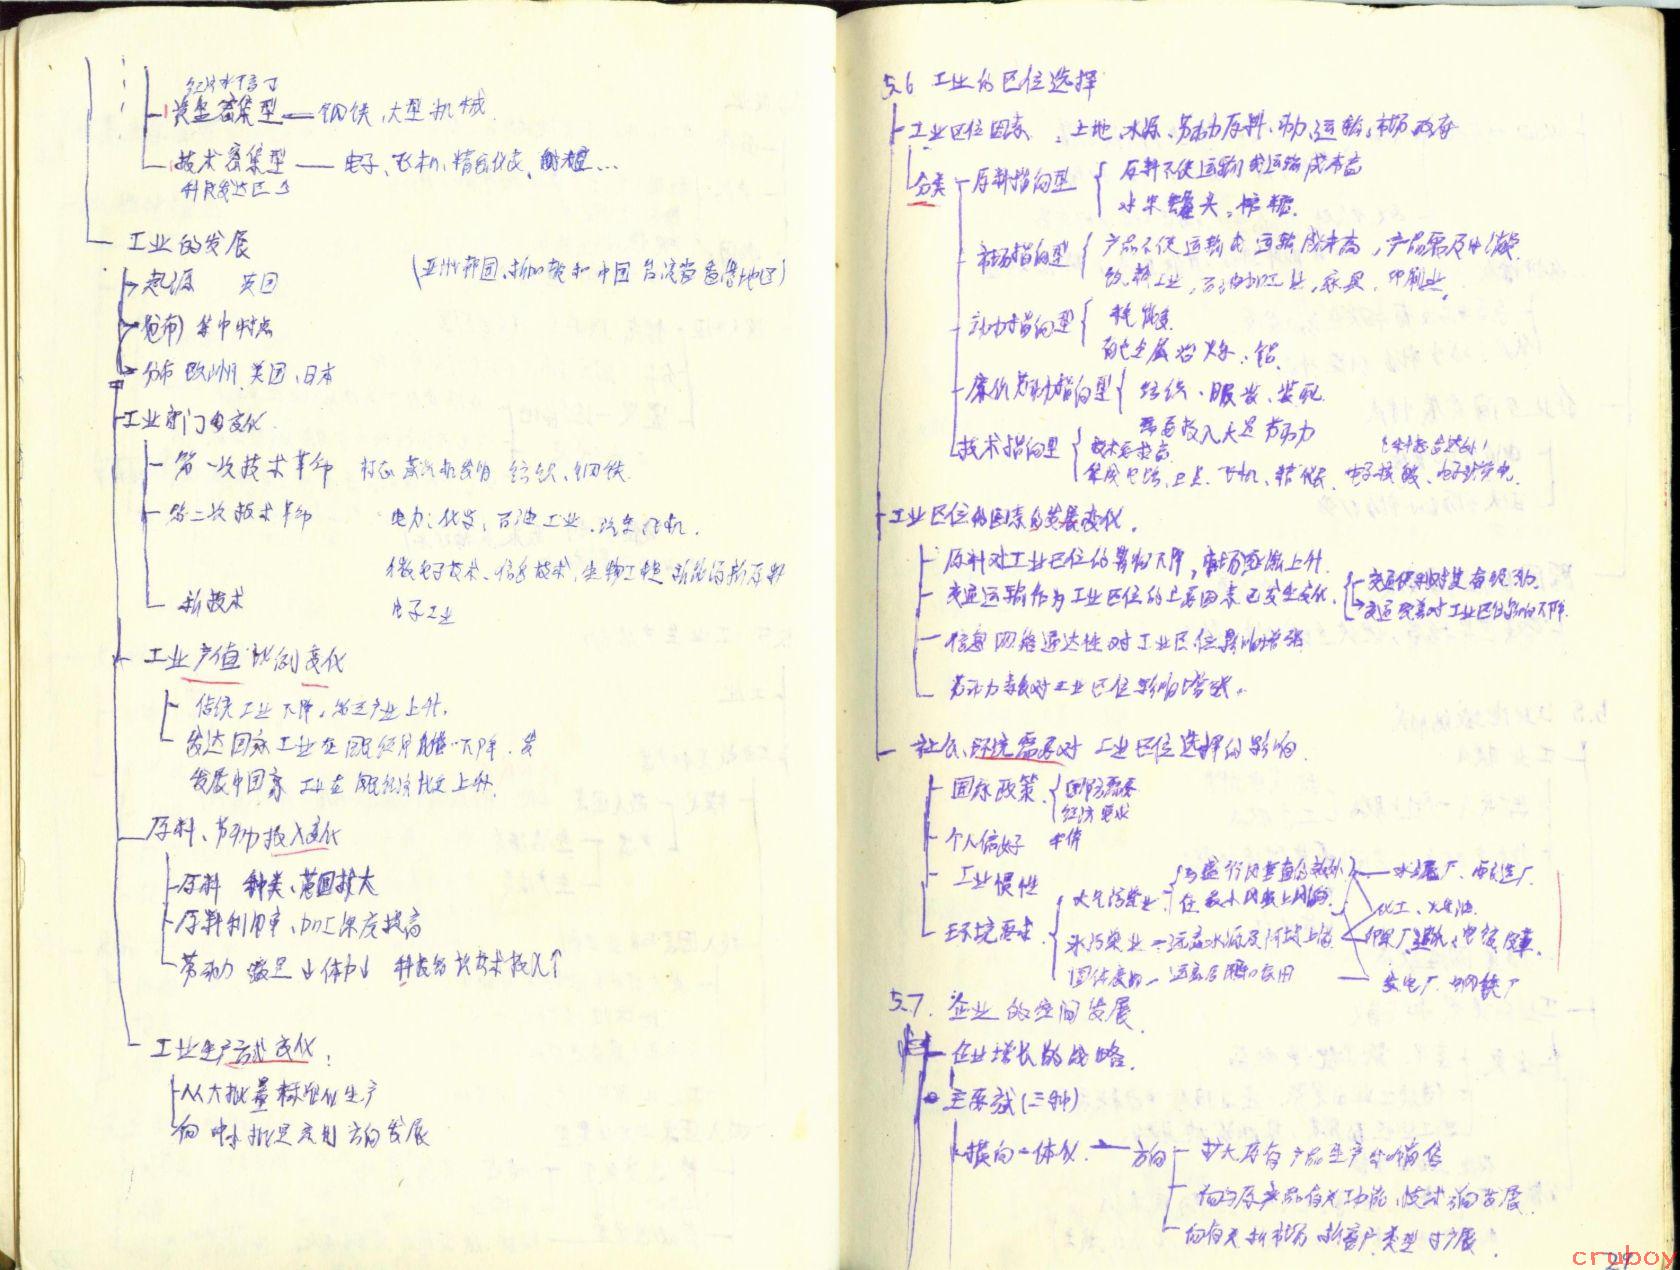 资金密集型 — 钢铁、大型机械
技术密集型 — 电子、飞机、精密仪表、
工业的发展
(亚洲韩国、新加坡和中国台湾省香港地区)
起源 英国
分布 集中特点
分布 欧洲、美国、日本
工业部门的变化
第一次技术革命 标志蒸汽机发明 纺织、钢铁
第二次技术革命 电力、化学、石油工业、汽车飞机
微电子技术、信息技术、生物工程 新能源新原料
新技术 电子工业
工业产值比例变化
传统工业下降,第三产业上升.
发达国家工业在国民经济比重下降.
发展中国家 工业在国民经济比重上升.
原料、劳动投入变化
原料 种类、范围扩大
原料利用率、加工深度提高
劳动力 数量↓体力↓ 科技的技术投入↑
工业生产方式变化:
从大批量标准化生产
向中小批量 方向发展
5.6 工业的区位选择
工业区位因素、土地、水源、劳动力原料、动力、运输、市场 政府
分类 原料指向型 { 原料不便运输或运输成本高
水果罐头、榨糖.
市场指向型 { 产品不便运输或运输成本高,
饮料工业,石油加工业,家具、印刷业.
动力指向型 { 耗能多
有色金属冶炼、铝
廉价劳动力指向型 { 纺织、服装、
需要投入大量劳动力
技术指向型 { 技术要求高
集成电路、卫星、飞机、精仪表、
工业区位的因素的发展变化.
原料对工业区位的影响下降,市场逐渐上升.
交通运输作为工业区位的主要因素已发生变化.
交通改善对工业区位影响下降.
信息网络通达性对工业区位影响增强
劳动力素质对工业区位影响增强.
社会、环境需要对工业区位选择的影响.
国家政策 { 国防需要
经济要求
个人偏好
工业惯性
环境要求 { 大气污染业 { 与盛行风垂直的郊外
在最小风频上风向
水污染业 — 远离水源及河流上游
固体废物 — 远离居民区农田
化工、
发电厂、钢铁厂
5.7. 企业的空间发展
企业增长的战略.
主要方式(三种)
横向一体化. — 方向 扩大原有产品生产和销售
向与原产品有关功能、技术方向发展.
向有关新市场 新客户类型扩展.
cruboy